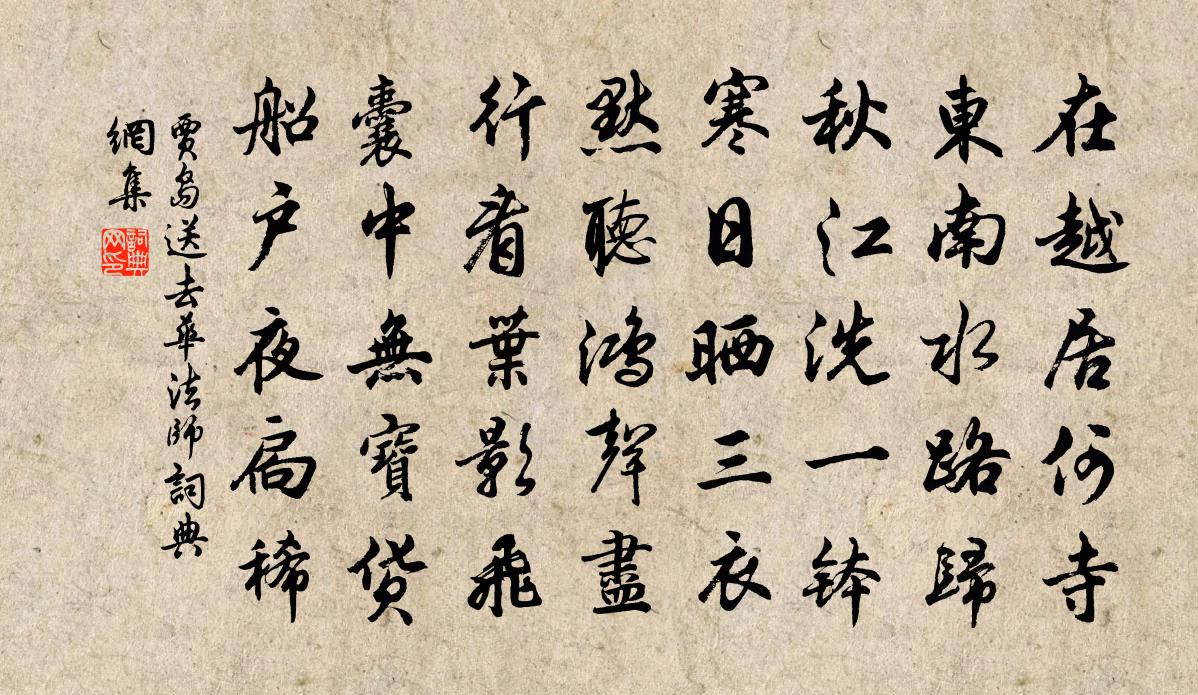 在越居何寺
東南水路歸
秋江洗一鉢
寒日晒三衣
默聽鴻聲盡
行看葉影飛
囊中無寶貨
船戶夜扃稀
賈島送去華法師詞典
網集
詞典
网印